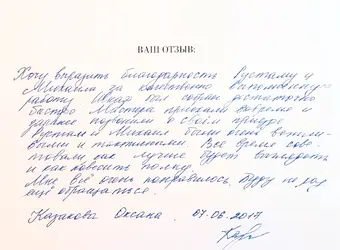 ВАШ ОТЗЫВ:
Хочу выразить благодарность Рустаму и
Михаилу за качественно выполненную
работу. Шкаф был собран достаточно
быстро. Мастера приехали вовремя и
заранее позвонили о своём приезде.
Рустам и Михаил были очень вежли-
выми и тактичными. Все время сове-
товали как лучше будет выглядеть
и как повесить полку.
Мне всё очень понравилось, буду не раз
ещё обращаться.
Казакова Оксана. 07.06.2017